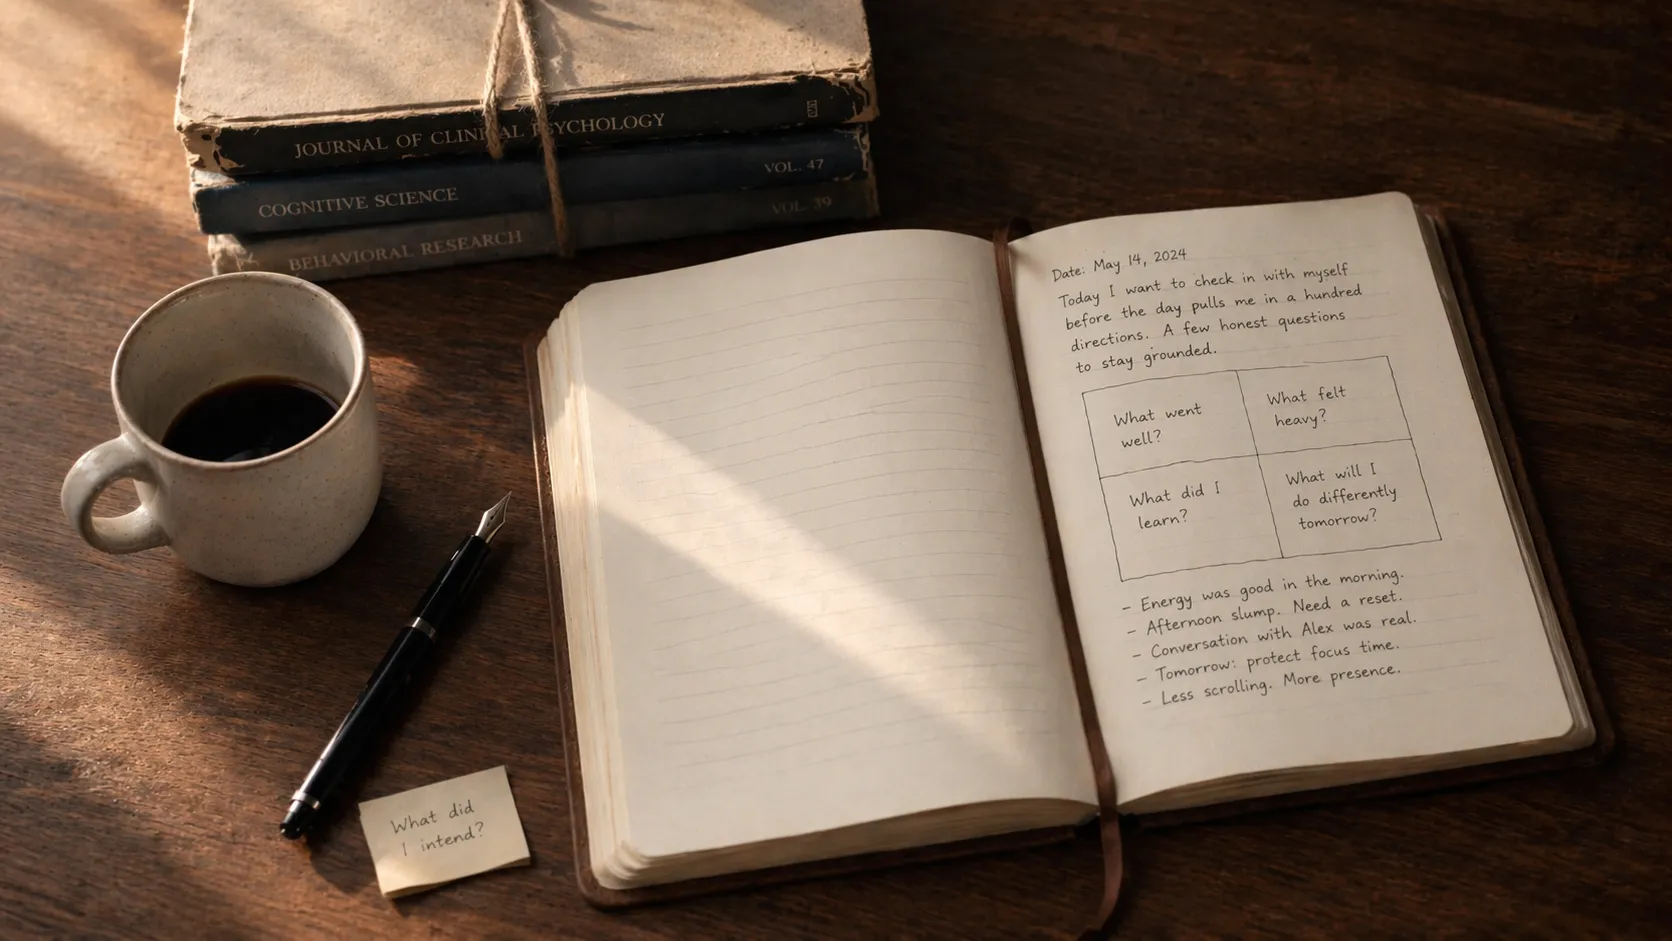 JOURNAL OF CLINICAL PSYCHOLOGY
COGNITIVE SCIENCE VOL. 47
BEHAVIORAL RESEARCH VOL. 39
Date: May 14, 2024
Today I want to check in with myself
before the day pulls me in a hundred
directions. A few honest questions
to stay grounded.
What went
well?
What felt
heavy?
What did I
learn?
What will I
do differently
tomorrow?
- Energy was good in the morning.
- Afternoon slump. Need a reset.
- Conversation with Alex was real.
- Tomorrow: protect focus time.
- Less scrolling. More presence.
What did
I intend?